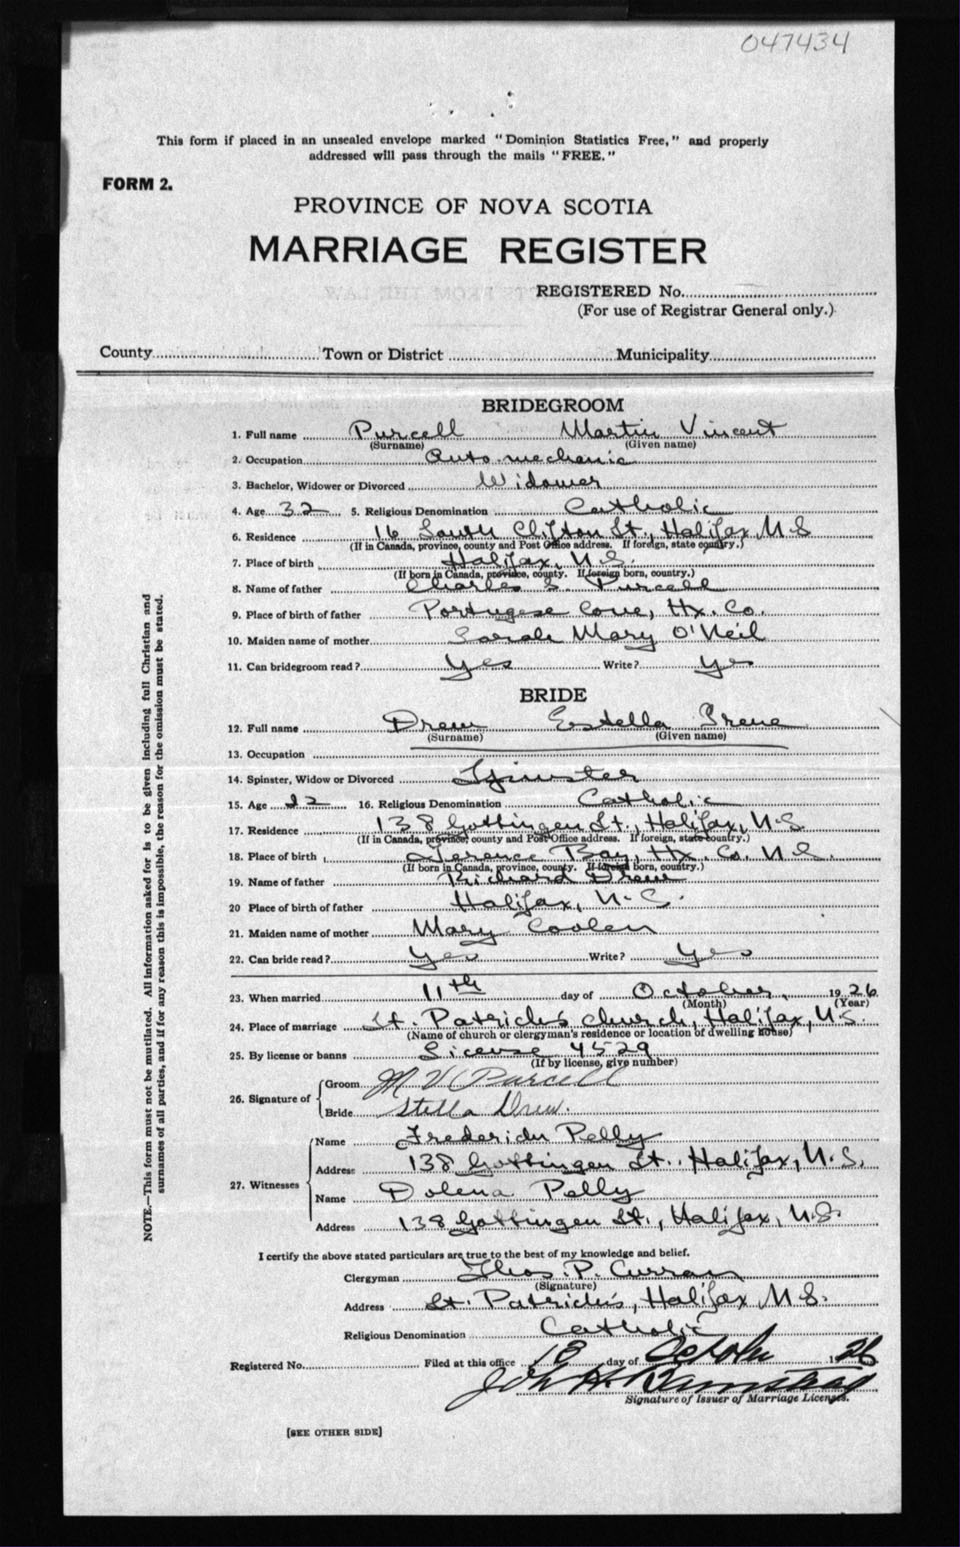 047434
This form if placed in an unsealed envelope marked "Dominion Statistics Free," and properly
addressed will pass through the mails "FREE."
FORM 2.
PROVINCE OF NOVA SCOTIA
MARRIAGE REGISTER
REGISTERED No.
(For use of Registrar General only.)
County Town or District Municipality
BRIDEGROOM
1. Full name Purcell Martin Vincent
(Surname) (Given name)
2. Occupation Auto mechanic
3. Bachelor, Widower or Divorced Widower
4. Age 32 5. Religious Denomination Catholic
6. Residence 16 South Clifton St., Halifax, N S
(If in Canada, province, county and Post Office address. If foreign, state country.)
7. Place of birth Halifax, N.S.
(If born in Canada, province, county. If foreign born, country.)
8. Name of father Charles S. Purcell
9. Place of birth of father Portugese Cove, Hx. Co.
10. Maiden name of mother Sarah Mary O'Neil
11. Can bridegroom read? Yes Write? Yes
BRIDE
12. Full name Drew Estella Irene
(Surname) (Given name)
13. Occupation
14. Spinster, Widow or Divorced Spinster
15. Age 22 16. Religious Denomination Catholic
17. Residence 138 Gottingen St., Halifax, N.S
(If in Canada, province, county and Post Office address. If foreign, state country.)
18. Place of birth Terence Bay, Hx. Co. N.S.
(If born in Canada, province, county. If foreign born, country.)
19. Name of father Richard Drew
20 Place of birth of father Halifax, N.S.
21. Maiden name of mother Mary Coolen
22. Can bride read? Yes Write? Yes
23. When married 11th day of October, 1926
(Month) (Year)
24. Place of marriage St. Patrick's Church, Halifax, N.S.
(Name of church or clergyman's residence or location of dwelling house)
25. By license or banns License 4529
(If by license, give number)
26. Signature of Groom M V Purcell
Bride Stella Drew.
27. Witnesses Name Frederick Pelly
Address 138 Gottingen St., Halifax, N.S.
Name Dolena Pelly
Address 138 Gottingen St., Halifax, N.S.
I certify the above stated particulars are true to the best of my knowledge and belief.
Clergyman Thos. P. Curran
(Signature)
Address St. Patrick's, Halifax N.S.
Religious Denomination Catholic
Registered No. Filed at this office 18 day of October 1926
John H.
Signature of Issuer of Marriage Licenses.
[SEE OTHER SIDE]
NOTE.—This form must not be mutilated. All information asked for is to be given including full Christian and
surnames of all parties, and if for any reason this is impossible, the reason for the omission must be stated.